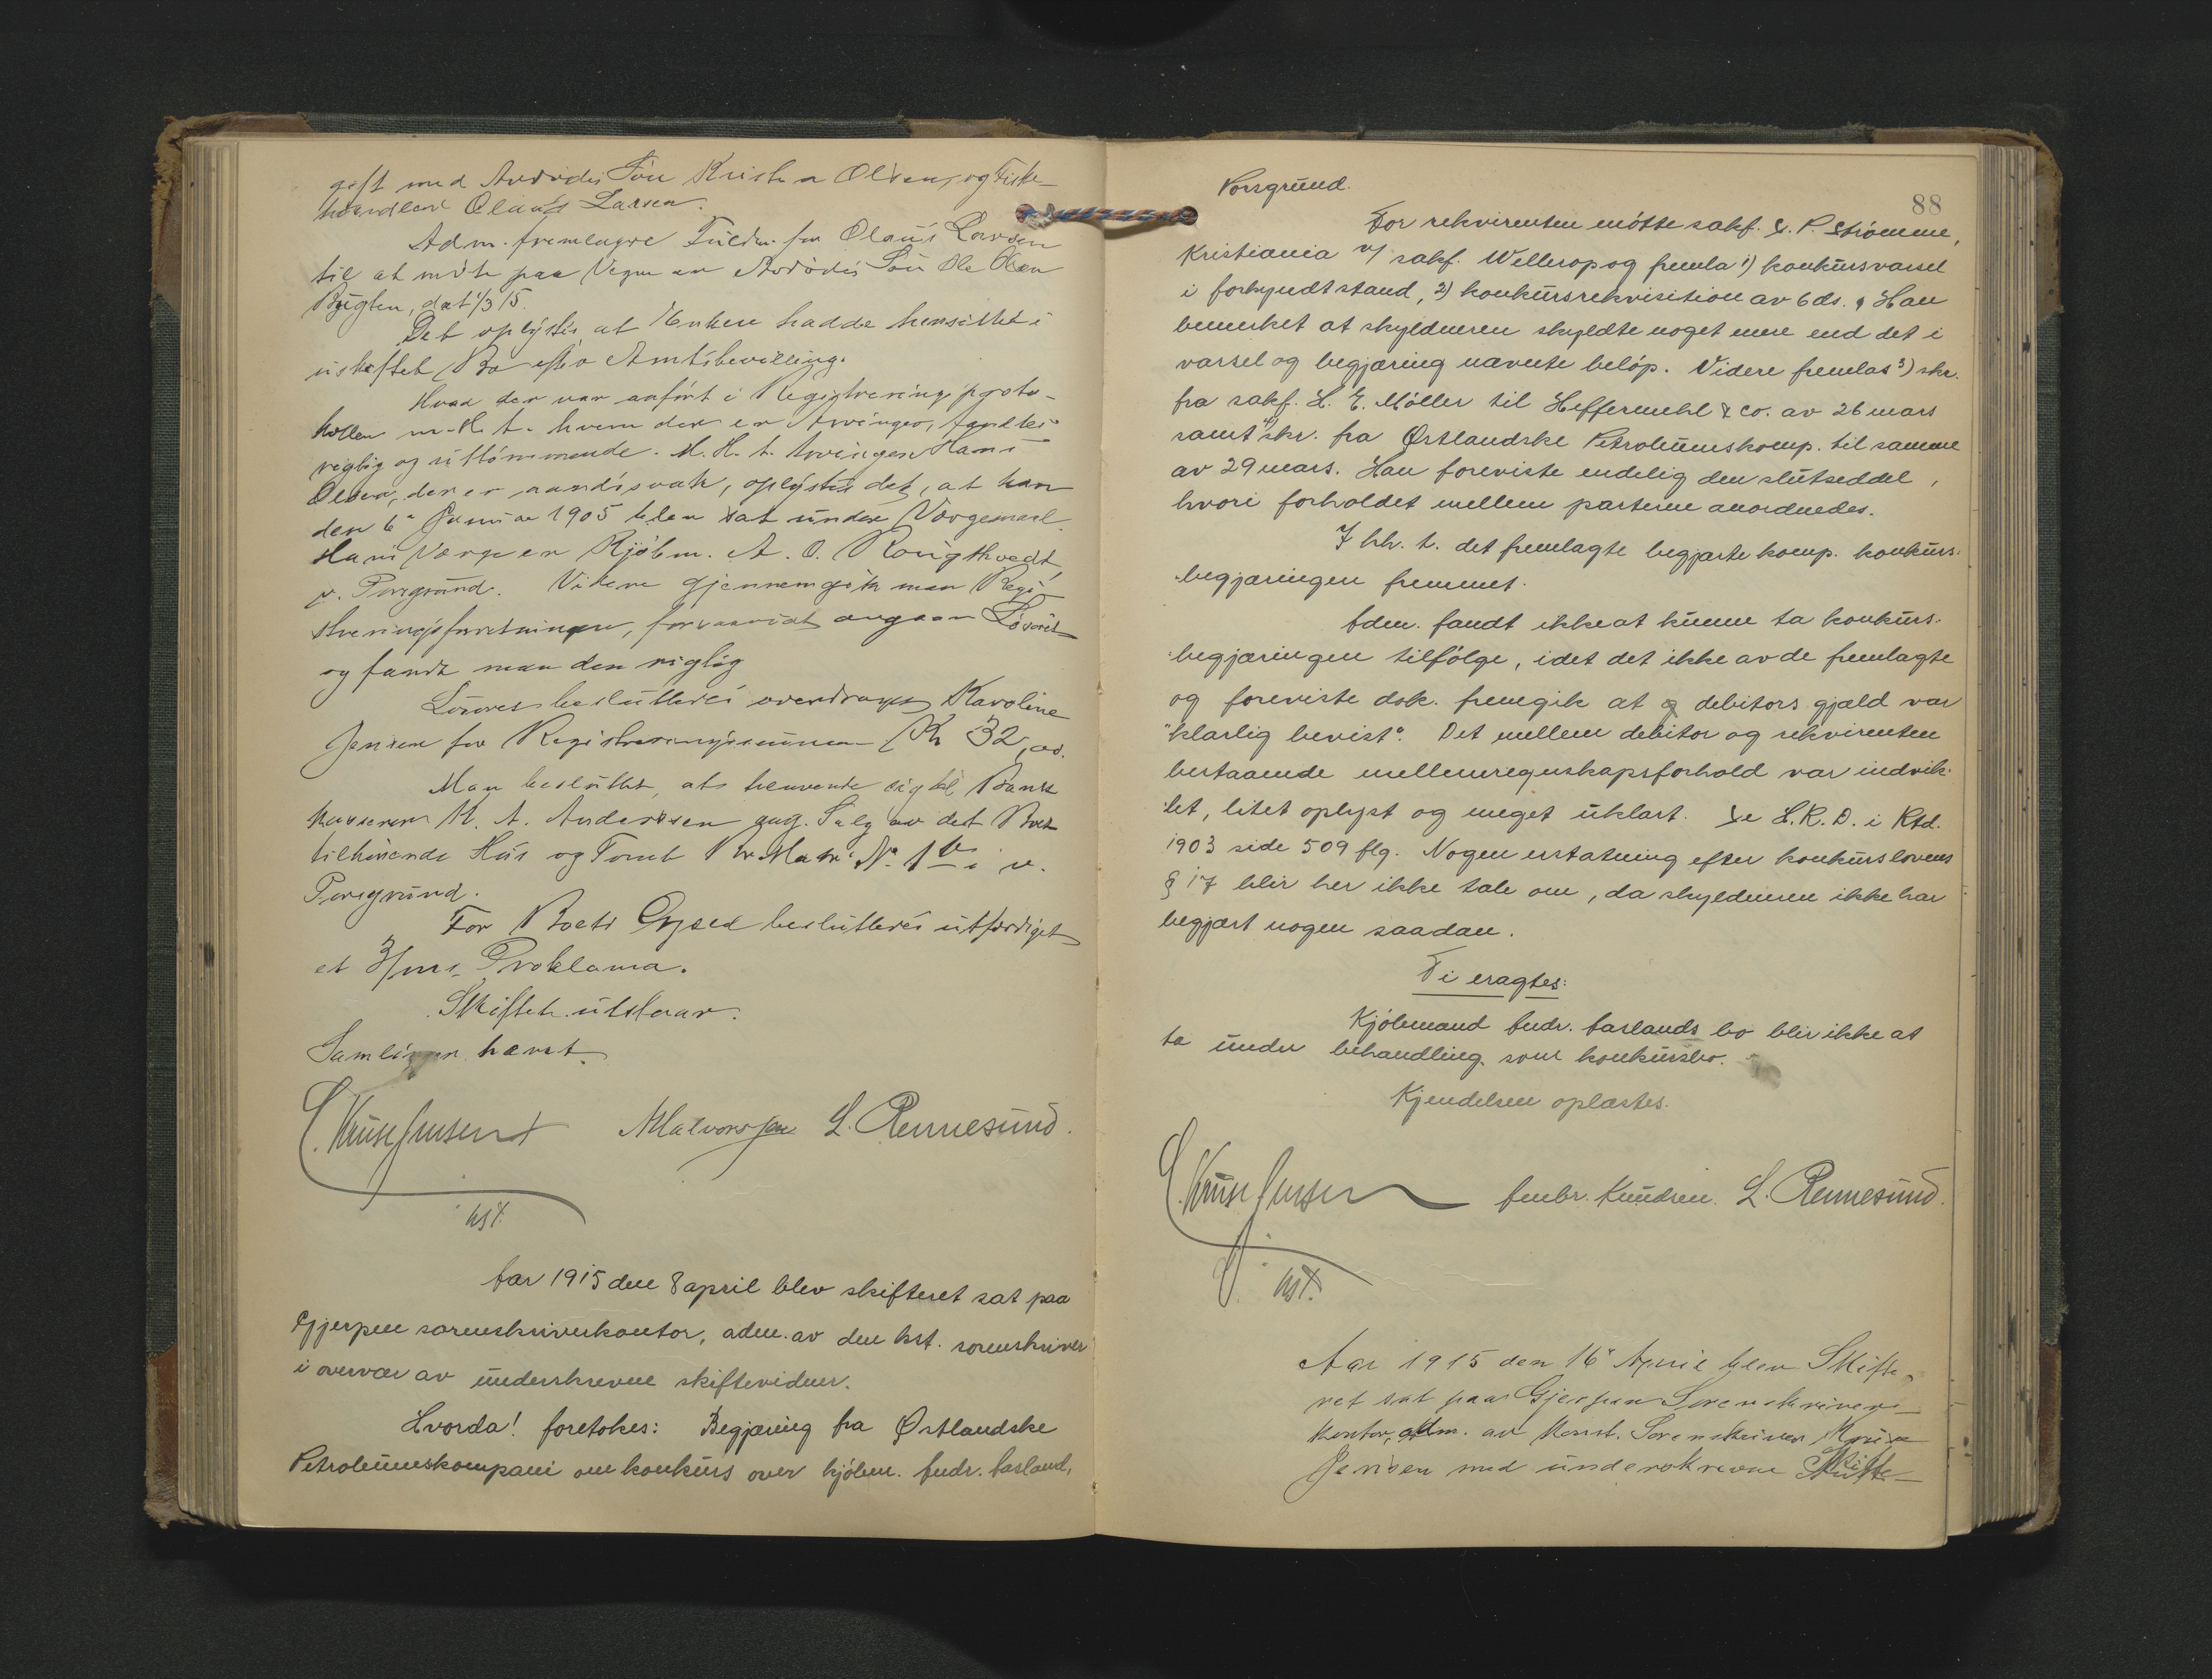 gift med Avdødes Søn Kristen Olsen, og Fiske-
handler Olaus Larsen.
Adm. fremlagde Fuldm. for Olaus Larsen
til at møte paa Vegne av Avdødes Søn Ole Olsen
dat 1/3 15.
Det oplystes, at Enken hadde hensittet i
uskiftet Bo efter Amtsbevilling.
Hvad der var anført i Registreringsproto-
kollen m. H. t. hvem der er Arvinger, fandtes
rigtig og uttømmende. M. H. t. Arvingen Hans
Olsen, der er aandssvak, oplystes det, at han
den 6te Januar 1905 blev sat under Værgemaal.
Hans Værge er Kjøbm. A. O. Rougthvedt,
v. Porsgrund. Videre gjennemgik man Regi-
streringsforretningen, forsaavidt angaar Løsøret
og fandt man den rigtig
Løsøret besluttedes overdraget Karoline
Jensen for Registreringssummen Kr 32,00.
Man besluttet, at henvende sig til Bank
kasserer K. A. Andersen ang. Salg av det Boet
tilhørende Hus og Tomt Br. Matr. No 1b i v.
Porsgrund.
For Boets Gjæld besluttedes utfærdiget
et 3/mrs Proklama.
Skiftet utstaar.
Samlingen hævet.
C. Kruse Jensen AHalvorsen L. Rennesund.
kst.
Aar 1915 den 8 april blev skifteret sat paa
Gjerpen sorenskriverkontor, adm. av den kst. sorenskriver
i overvær av underskrevne skiftevidner.
Hvorda! foretokes: Begjæring fra Østlandske
Petroleumskompani om konkurs over kjøbm. Andr. Aasland,
88
Porsgrund.
For rekvirenten møtte sakf. S. P. Strømme,
Kristiania v/ sakf. Wellerop og fremla 1) konkursvarsel
i forkyndt stand, 2) konkursrekvisition av 6 ds. Han
bemerket at skyldneren skyldte noget mere end det i
varsel og begjæring nævnte beløp. Videre fremlas 3) skr.
fra sakf. H. E. Møller til Heffermehl & co. av 26 mars
samt 4) skr. fra Østlandske Petroleumskomp. til samme
av 29 mars. Han foreviste endelig den slutseddel,
hvori forholdet mellem parterne anordnedes.
I hh. t. det fremlagte begjærte komp. konkurs-
begjæringen fremmet.
Adm. fandt ikke at kunne ta konkurs-
begjæringen tilfølge, idet det ikke av de fremlagte
og foreviste dok. fremgik at debitors gjæld var
"klarlig bevist". Det mellem debitor og rekvirenten
bestaaende mellemregnskapsforhold var indvik-
let, litet oplyst og meget uklart. Se H. R. D. i Rtd.
1903 side 509 flg. Nogen erstatning efter konkurslovens
§ 17 blir her ikke tale om, da skyldneren ikke har
begjært nogen saadan.
Ti eragtes:
Kjøbmand Andr. Aaslands bo blir ikke at
ta under behandling som konkursbo.
Kjendelsen oplæstes.
C. Kruse Jensen Ambr. Knudsen. L. Rennesund.
kst.
Aar 1915 den 16de April blev Skifte-
ret sat paa Gjerpen Sorenskriver-
kontor, adm. av Konst. Sorenskriver Kruse
Jensen med underskrevne Skifte-